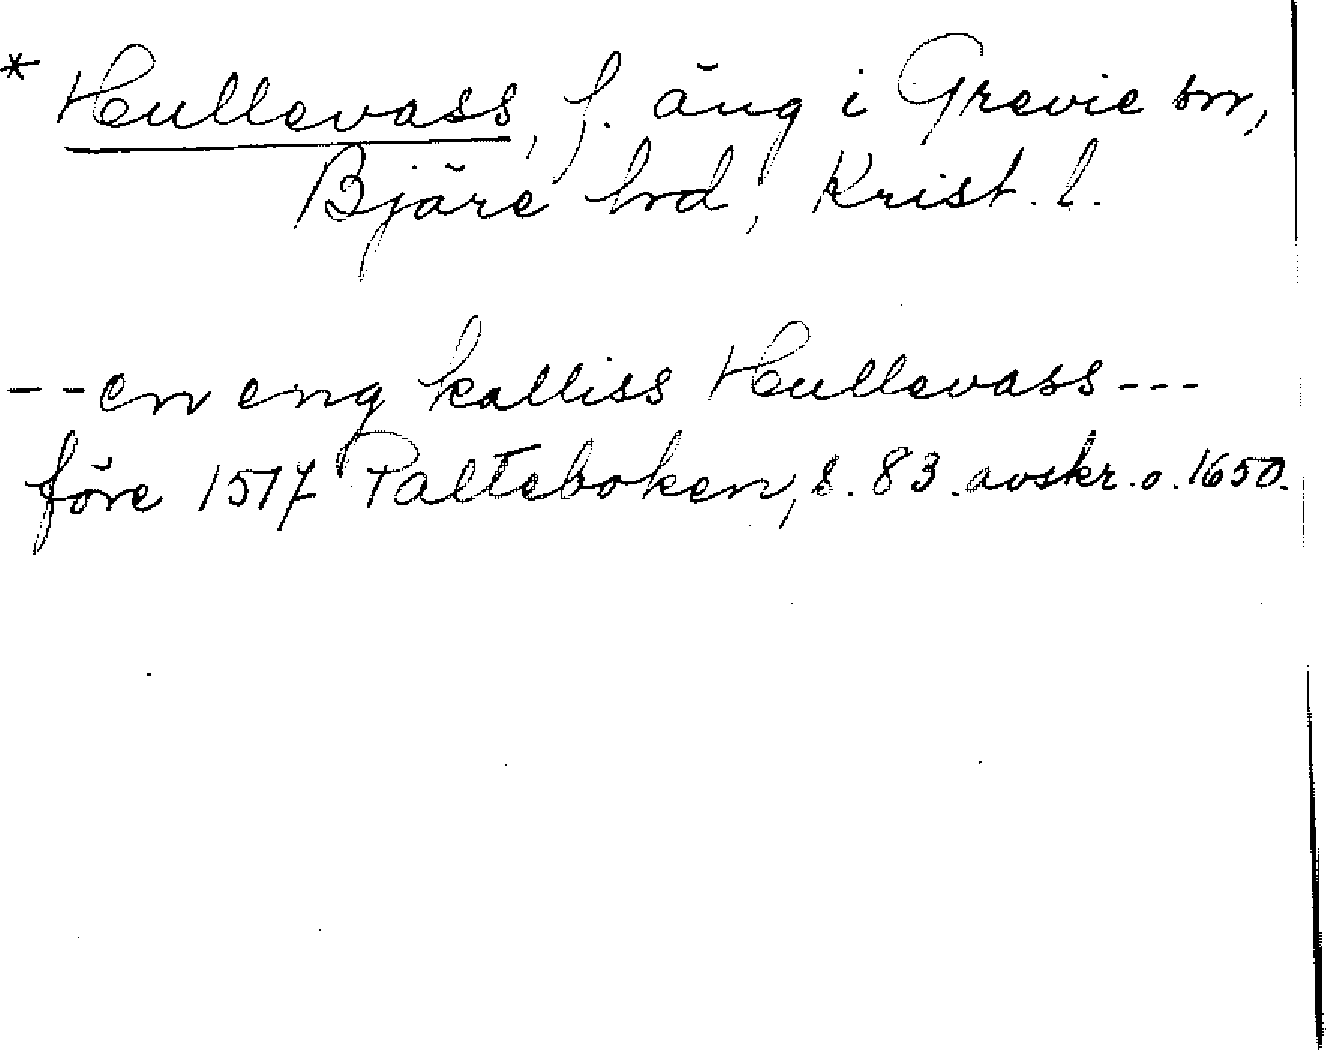 * Hullevass, f. äng i Grevie sn,
Bjäre hrd, Krist. l.
--en eng kalliss Hullevass---
före 1517 Palteboken, s. 83. avskr. o. 1650.